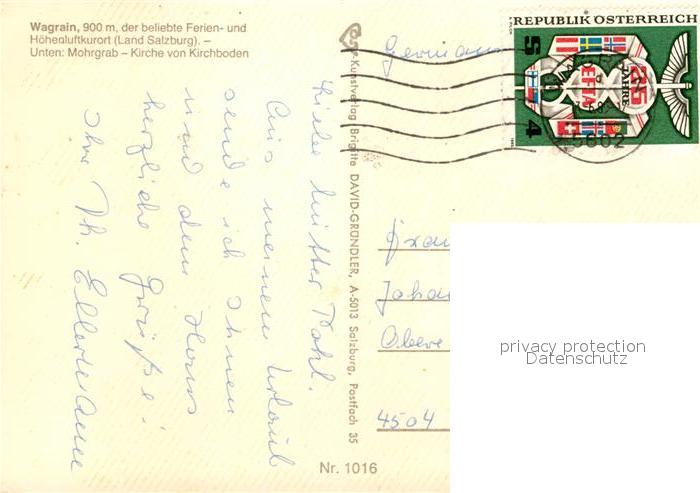 Wagrain, 900 m, der beliebte Ferien- und
Höhenluftkurort (Land Salzburg). –
Unten: Mohrgrab – Kirche von Kirchboden
Liebe Mutter Pohl.
Aus meinem Urlaub
sende ich Ihnen
und dem Haus
herzliche Grüße!
Ihre Th.
Kunstverlag Brigitte DAVID-GRÜNDLER, A-5013 Salzburg, Postfach 35
Nr. 1016
Germany
REPUBLIK ÖSTERREICH
S 4
25 JAHRE
EFTA
5602
Frau
Johan
Obere
4504
privacy protection
Datenschutz